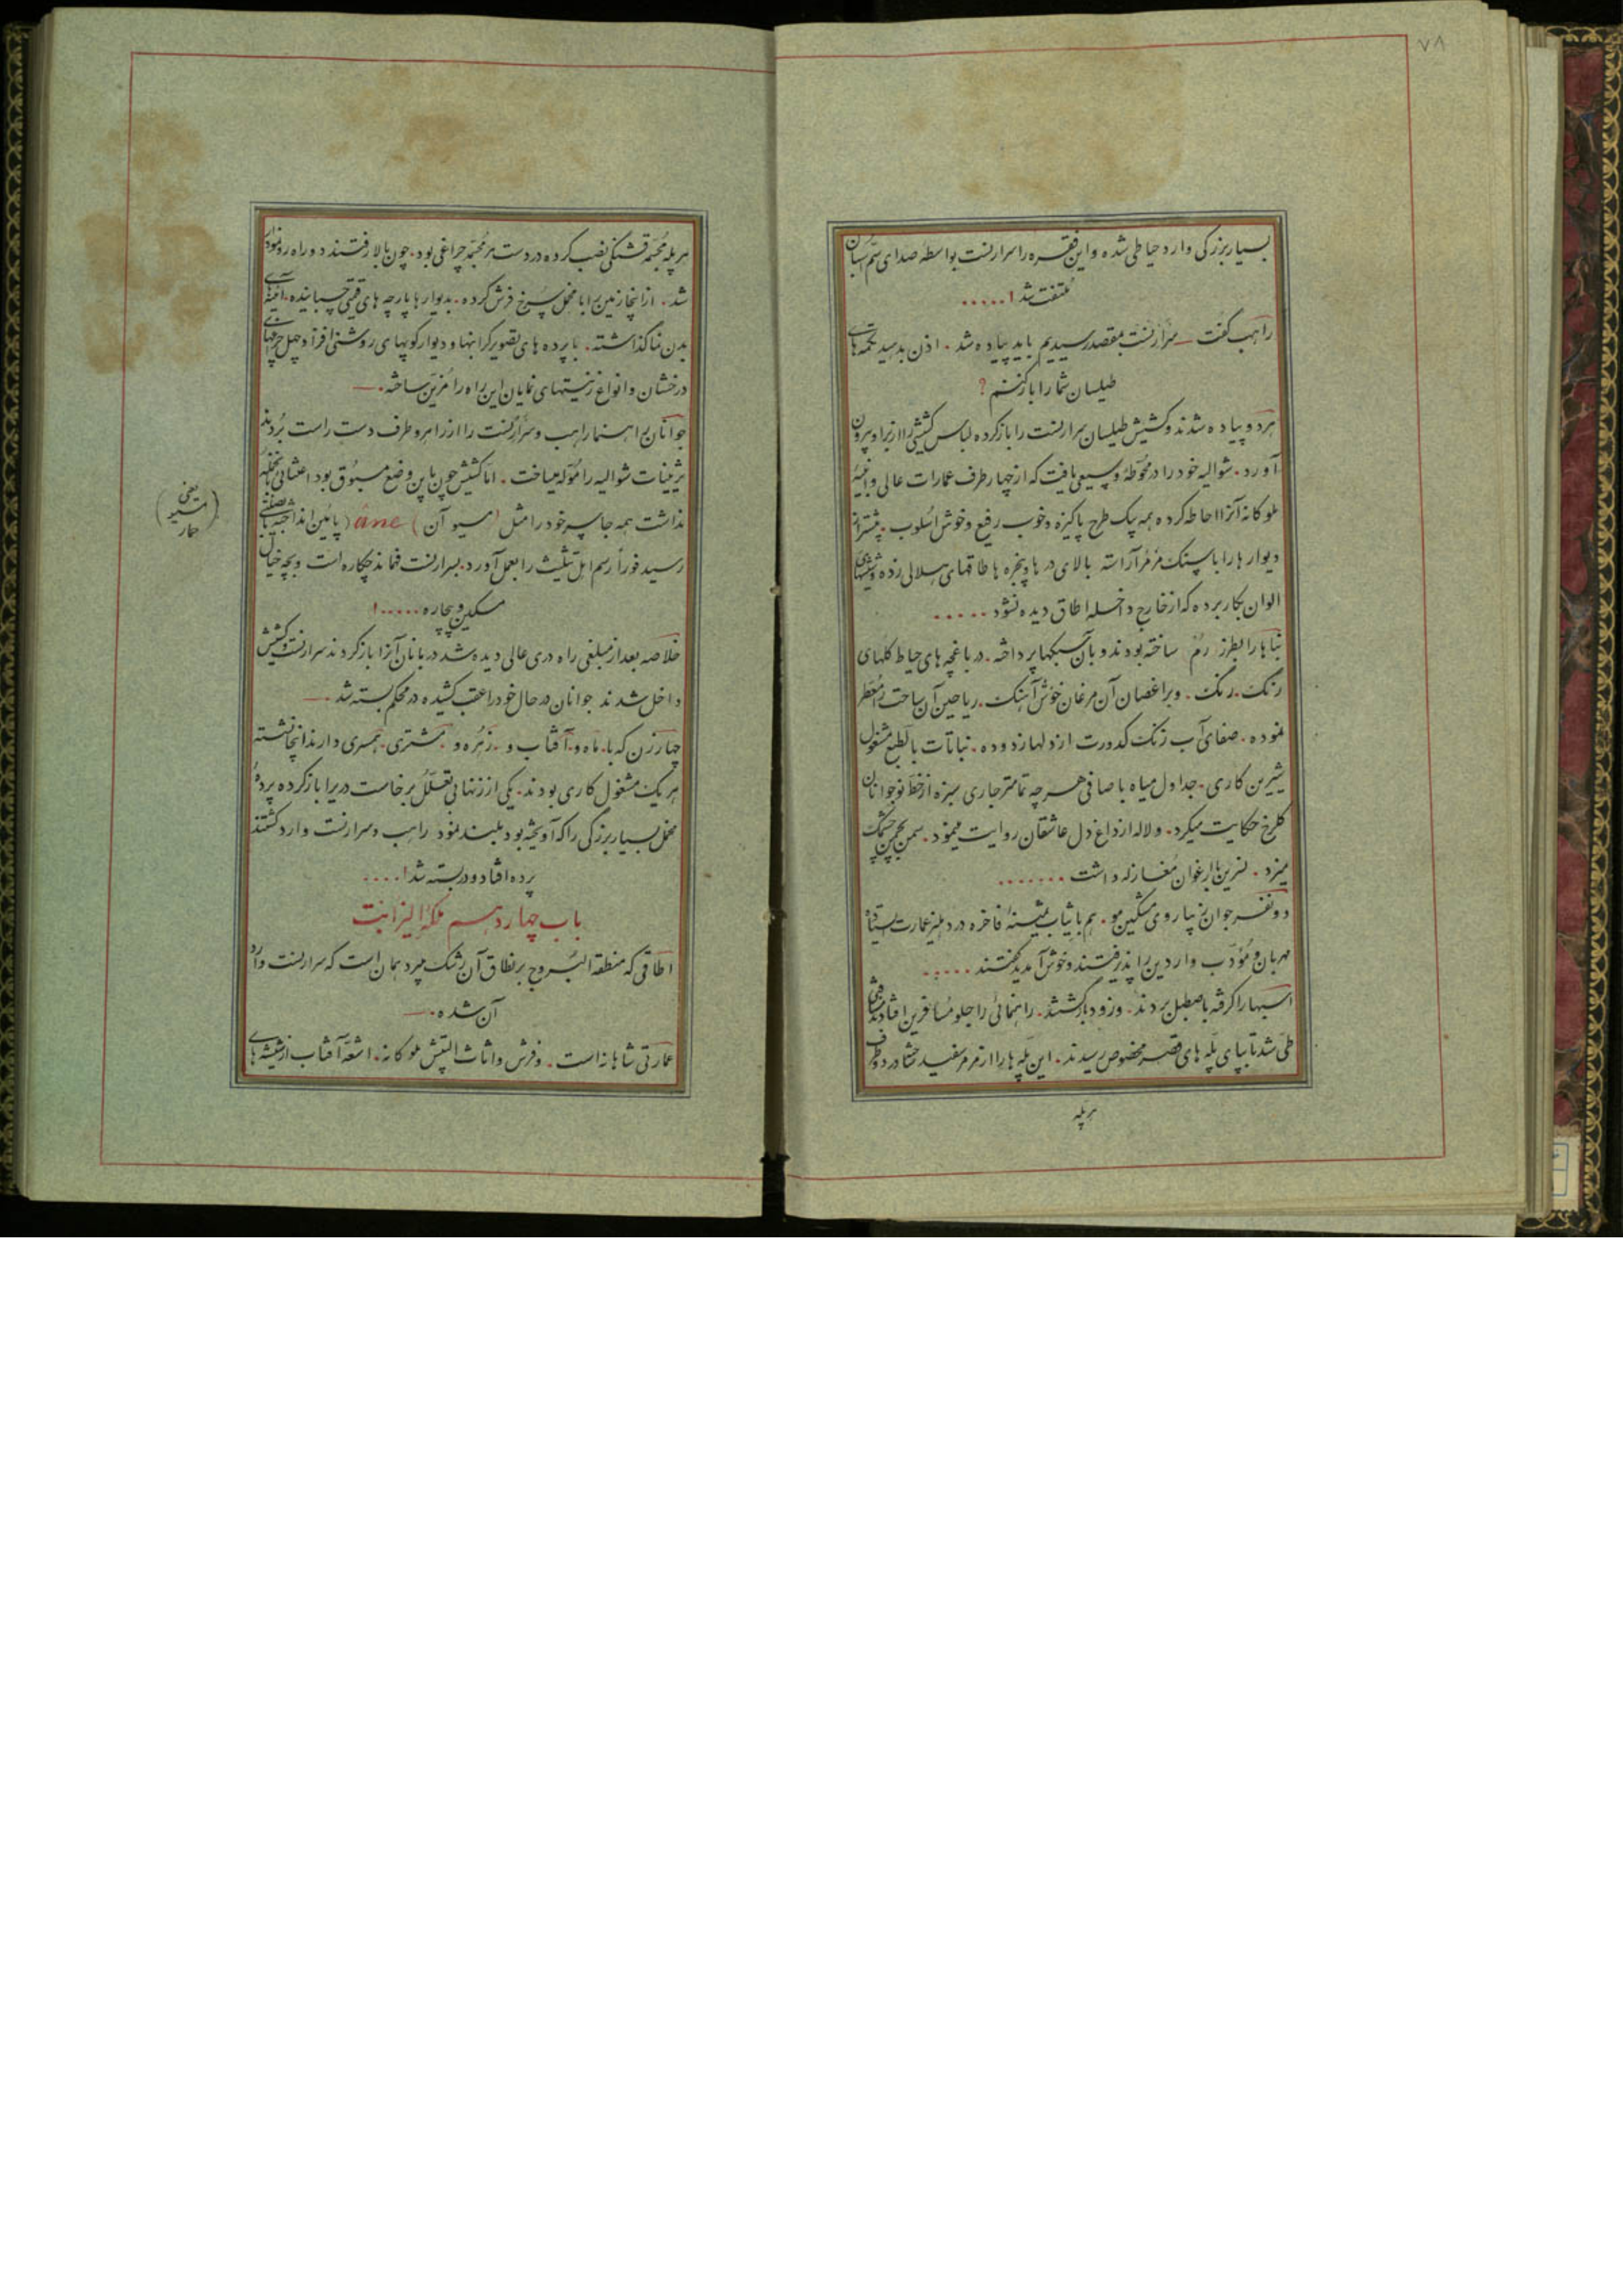 ۷۸
بسیار بزرکی وارد حیاطی شده و این فقره را سرارنست بواسطه صدای سم اسبان
ملتفت شد !.....
راهب کفت ــ سرارنست بمقصد رسیدیم باید پیاده شد . اذن بدهید تکمه های
طیلسان شما را باز کنم ؟
هر دو پیاده شدند و کشیش طیلسان سرارنست را باز کرده لباس کشیشی را از بر او بیرون
آورد . شوالیه خود را در محوطهٔ وسیعی یافت که از چهار طرف عمارات عالی و ابنیهٔ
ملوکانه آنرا احاطه کرده همه بیک طرح پاکیزه و خوب رفیع و خوش اسلوب . بیشتر از
دیوارها را با سنک مرمر آراسته بالای در ها و پنجره ها طاقهای هلالی زده و شیشهای
الوان بکار برده که از خارج داخله اطاق دیده نشود .....
بناها را بطرز رُم ساخته بودند و بآن سبکها پرداخته . در باغچه های حیاط کلهای
رنک . رنک . و بر اغصان آن مرغان خوش آهنک . ریاحین آن ساحت را معطر
نموده . صفای آب زنک کدورت از دلها زدوده . نباتات بالطبع مشغول
شیرین کاری . جداول میاه با صافی هر چه تمامتر جاری سبزه از خط نوجوانان
کلرخ حکایت میکرد . و لاله از داغ دل عاشقان روایت مینمود . سمن بچمن چشمک
میزد . نسرین با ارغوان مغازله داشت .......
دو نفر جوان زیبا روی مشکین مو . هم با ثیاب ثمینهٔ فاخره در دهلیز عمارت ایستاده
مهربان و مؤدب واردین را پذیرفتند و خوش آمدید کفتند .....
اسبها را کرفته باصطبل بردند . و زود بازکشتند . راهنمائی را جلو مسافرین افتادند مسافتی
طی شد تا بپای پله های قصر مخصوص رسیدند . این پله ها را از مرمر سفید و در دو طرف
هر پله
هر پله مجسمه قشنکی نصب کرده در دست هر مجسمه چراغی بود . چون بالا رفتند دو راه رو نمودار
شد . از اینجا زمین را با مخمل سرخ فرش کرده . بدیوارها پارچه های قیمتی چسبانیده . آینه های
بدن نما کذاشته . با پرده های تصویر کرانبها و دیوارکوبهای روشنی افزا و چهل چراغهای
درخشان و انواع زینتهای نمایان این راه را مزین ساخته . ــ
جوانان راهنما راهب و سرارنست را از راهرو طرف دست راست بردند
تزئینات شوالیه را مؤلّه میساخت . اما کشیش چون باین وضع مسبوق بود اعتنائی بآنها
نداشت همه جا سر خود را مثل (مسیو آن) âne (پائین انداخته)
رسید فوراً رسم اهل تثلیث را بعمل آورد . سرارنست فهماند چکاره است و بچه خیال
مسکین و بیچاره .....!
(یعنی
مسیو
حمار)
خلاصه بعد از مبلغی راه دری عالی دیده شد دربانان آنرا باز کردند سرارنست و کشیش
داخل شدند جوانان در حال خود را عقب کشیده در محکم بسته شد . ــ
چهار زن که با . ماه و . آفتاب و . زهره و . مشتری . همسری دارند آنجا نشسته
هر یک مشغول کاری بودند . یکی از زنها بی تعلل برخاست در را باز کرده پردهٔ
مخمل بسیار بزرکی را که آویخته بود بلند نمود راهب و سرارنست وارد کشتند
پرده افتاد و در بسته شد !....
باب چهاردهم ملکه الیزابت
اطاقی که منطقة البروج بر نطاق آن رشک میبرد همان است که سرارنست وارد
آن شده . ــ
عمارتی شاهانه است . و فرش و اثاث البیتش ملوکانه . اشعهٔ آفتاب از شیشه های